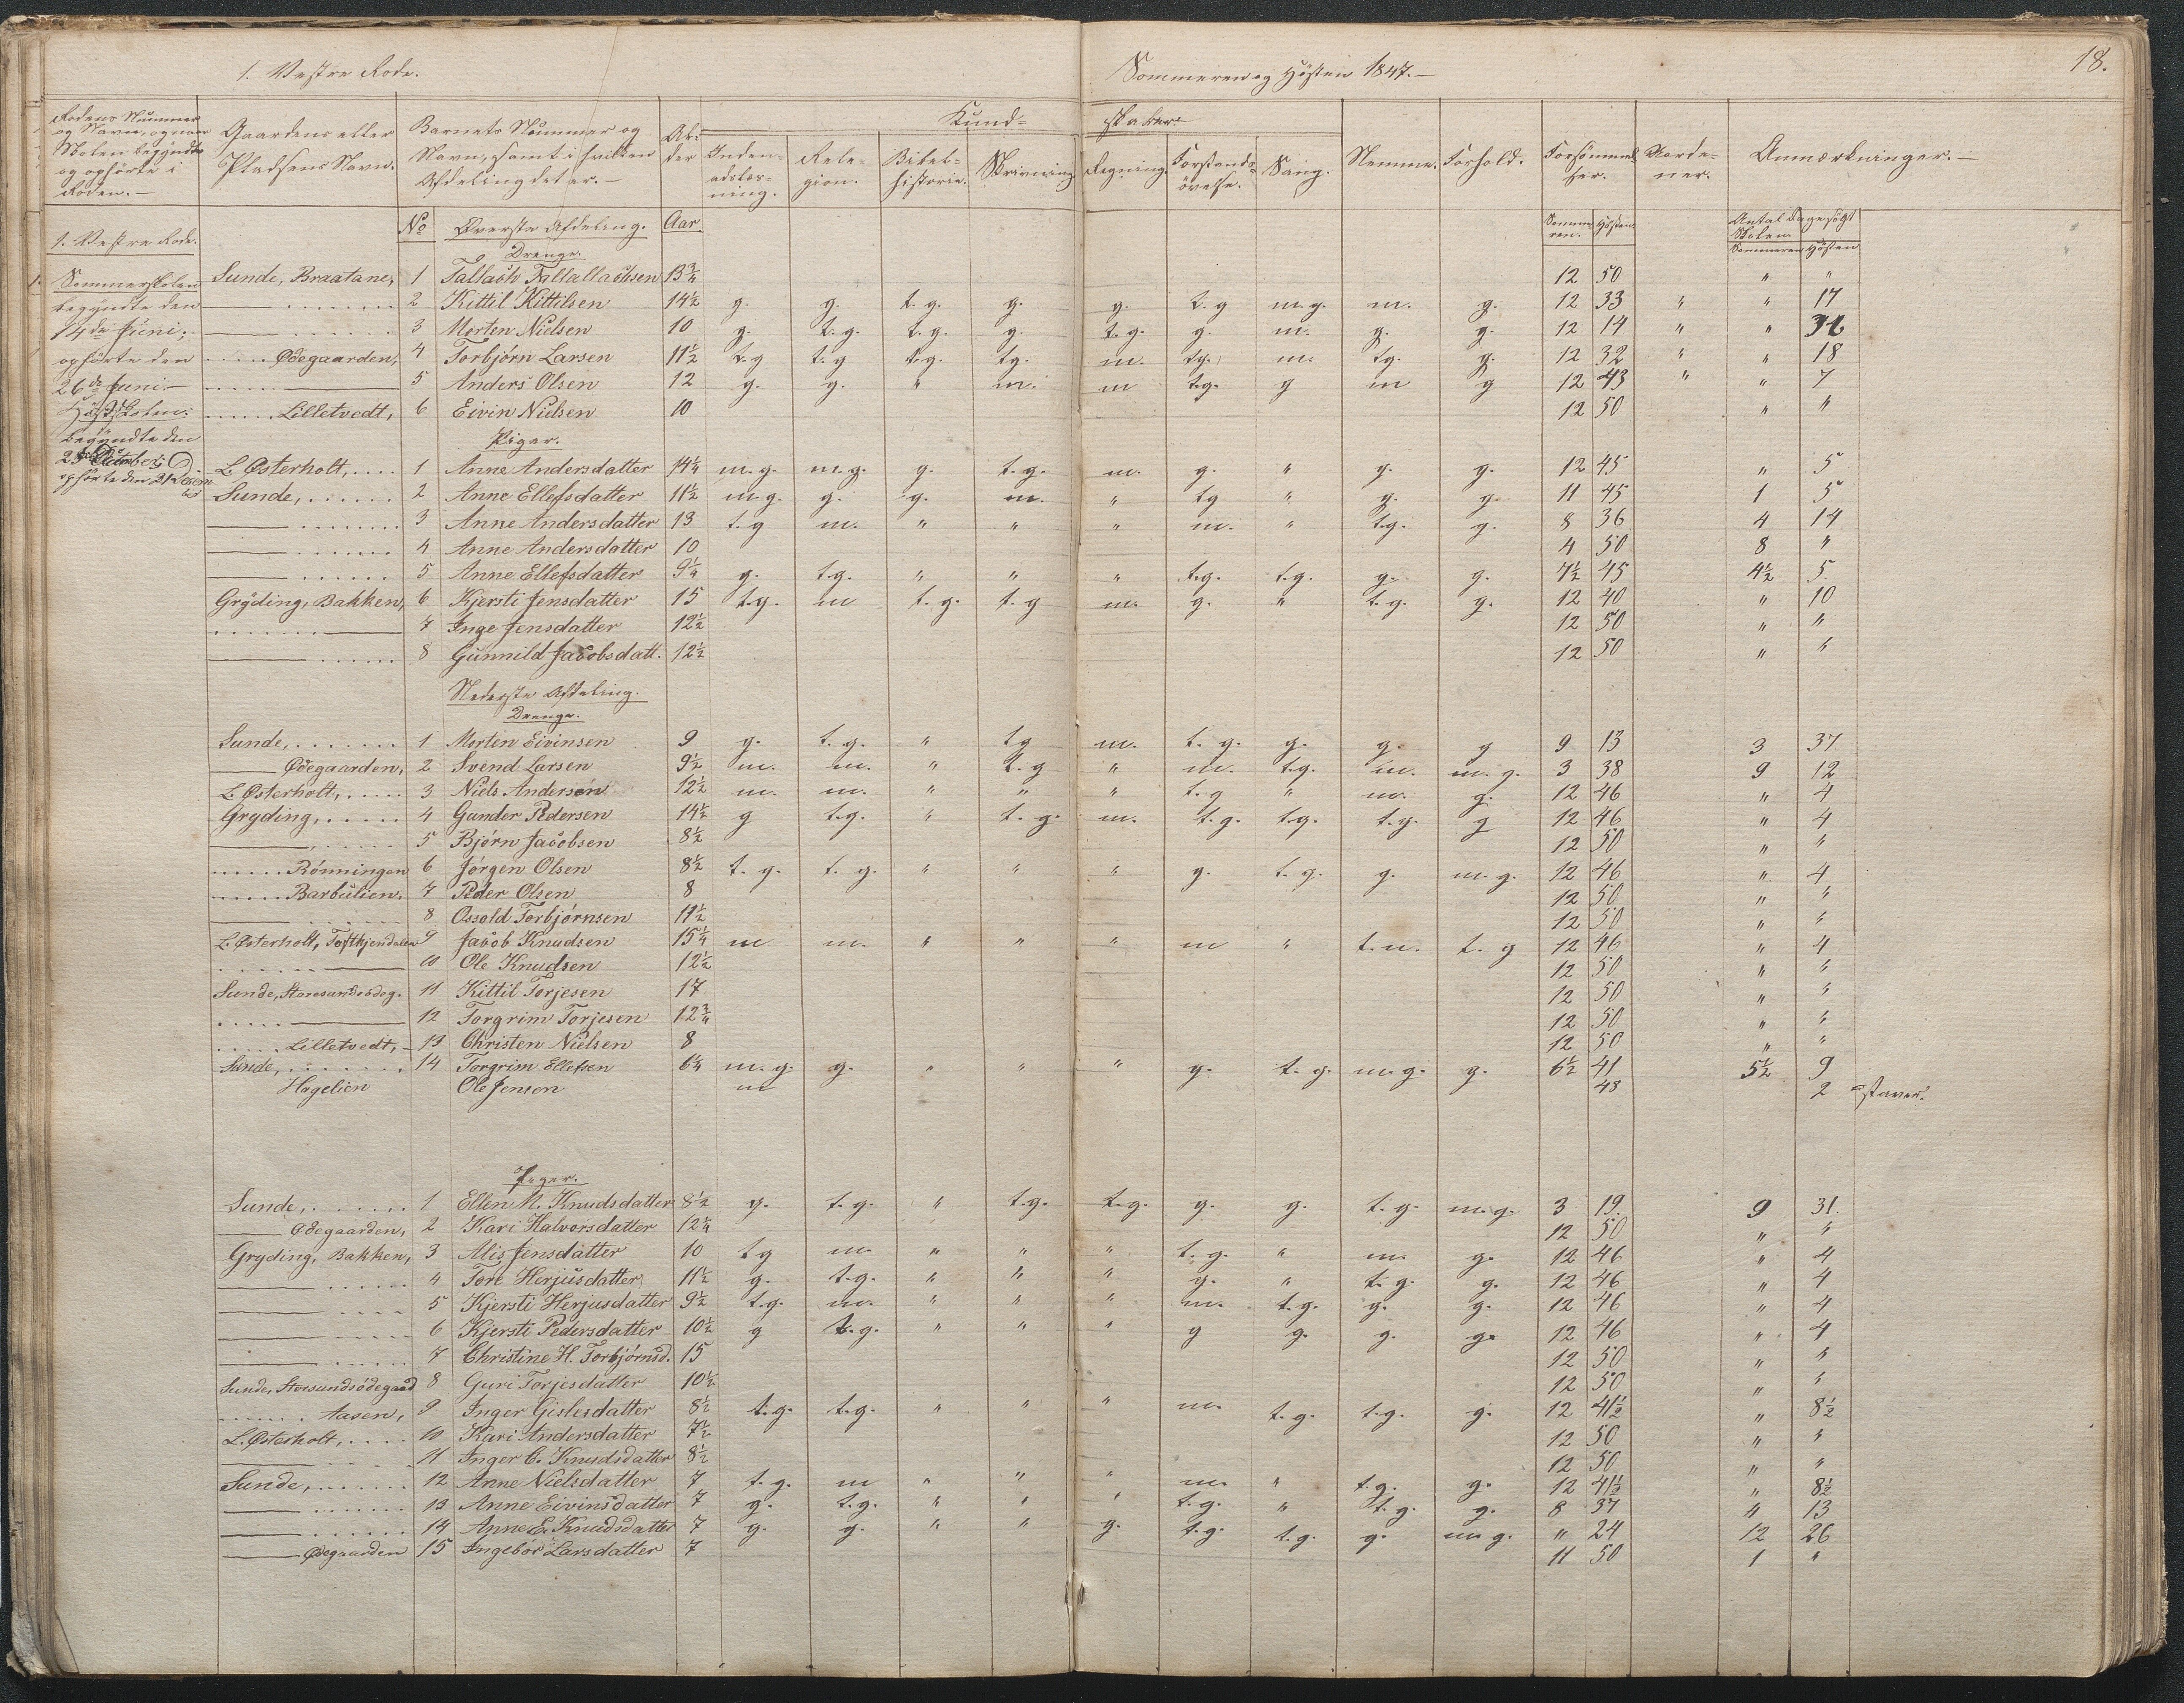 1. Vestre Rode.
Sommeren og Hösten 1847.—
18.
Rodens Nummer og Navn, og naar Skolen begyndte og ophörte i Roden.—
Gaardens eller Pladsens Navn.
Barnets Nummer og Navn, samt i hvilken Afdeling det er.—
Alder
Kundskaber
Indenadslæsning.
Relegion.
Bibelhistorie.
Skrivning.
Regning.
Forstandsövelse.
Sang.
Nemme.
Forhold.
Forsömmelser.
Anmærkninger.—
1. Vestre Rode.
No Øverste Afdeling. Aar
Sommeren. Hösten.
Antal Dage sögt Skolen
Sommeren Hösten
Sommerskolen
begyndte den
14de Juni;
ophörte den
26de Juni.—
Höstskolen:
begyndte den
ophörte den 21 Decem
ber
Drenge.
Sunde, Braatane, 1 Tallach Tallachsen 13¾ 12 50 " "
2 Kittil Kittilsen 14½ g. g. t.g. g. g. t.g m.g. m. g. 12 33 " " 17
3 Morten Nielsen 10 g. t.g. t.g. g. t.g. g. m. g. g. 12 14 " "
Ødegaarden, 4 Torbjørn Larsen 11½ t.g t.g t.g. tg. m. tg. m. tg. g. 12 32 " " 18
5 Anders Olsen 12 g. g. " m. m t.g. g m g 12 43 " " 7
Lilletvedt, 6 Eivin Nielsen 10 12 50 " "
Piger.
L. Østerholt, 1 Anne Andersdatter 14¼ m.g. m.g. g. t.g. m. g. " g. g. 12 45 " 5
Sunde, 2 Anne Ellefsdatter 11½ m.g. g. g. m. " tg " g. g. 11 45 1 5
3 Anne Andersdatter 13 t.g m. " " " m. " t.g. g. 8 36 4 14
4 Anne Andersdatter 10 4 50 8 "
5 Anne Ellefsdatter 9¼ g. t.g. " " " t.g. t.g. g. g. 7½ 45 4½ 5
Gryding, Bakken, 6 Kjersti Jensdatter 15 t.g. m t.g. t.g m. g. " t.g. g. 12 40 " 10
7 Inge Jensdatter 12½ 12 50 " "
8 Gunnild Jacobsdatt. 12½ 12 50 " "
Nederste Afdeling.
Drenge.
Sunde, 1 Morten Eivinsen 9 g. t.g. " tg m. t.g. g. g. g 9 13 3 37
Ødegaarden, 2 Svend Larsen 9½ m. m. " t.g " m. t.g. m. m.g. 3 38 9 12
L. Østerholt, 3 Niels Andersen 12½ m. m. " " " t.g " m. g. 12 46 " 4
Gryding, 4 Gunder Pedersen 14½ g t.g. " t.g. m. t.g. t.g. t.g. g 12 46 " 4
5 Bjørn Jacobsen 8½ 12 50 " "
Rönningen 6 Jørgen Olsen 8½ t.g. t.g. " " " g. t.g. g. m.g. 12 46 " 4
Barbulien. 7 Peder Olsen 8 12 50 " "
8 Ossold Torbjørnsen 11½ 12 50 " "
L. Østerholt, 9 Jacob Knudsen 15¼ m m. " " " m " t.m. t.g 12 46 " 4
10 Ole Knudsen 12½ 12 50 " "
Sunde, Storesundsødeg. 11 Kittil Torjesen 17 12 50 " "
12 Torgrim Torjesen 12¾ 12 50 " "
Lilletvedt, 13 Christen Nielsen 8 12 50 " "
Sunde, 14 Torgrim Ellefsen 6¼ m.g. g. " " " g. t.g. m.g. g. 6½ 41 5½ 9
Hagelien Ole Jensen m 48 2 staver.
Piger.
Sunde, 1 Ellen M. Knudsdatter 8½ g. t.g. " t.g. t.g. g. g. t.g. m.g. 3 19. 9 31.
Ødegaarden, 2 Kari Halvorsdatter 12¼ 12 50 " "
Gryding, Bakken, 3 Alis Jensdatter 10 tg m. " " " t.g. " m. g. 12 46 " 4
4 Tore Herjusdatter 11½ g. t.g. " " " g. " t.g. g. 12 46 " 4
5 Kjersti Herjusdatter 9½ t.g. m. " " " m. t.g. g. g. 12 46 " 4
6 Kjersti Pedersdatter 10½ g t.g. " " " g g. g. g. 12 46 " 4
7 Christine H. Torbjørnsd. 15 12 50 " "
Sunde, Storsundsødegaard 8 Guri Torjesdatter 10½ 12 50 " "
Aasen, 9 Inger Gislesdatter 8½ t.g. t.g. " " " m. t.g. t.g. g. 12 41½ " 8½
L. Østerholt, 10 Kari Andersdatter 7½ 12 50 " "
11 Inger C. Knudsdatter 8½ 12 50 " "
Sunde, 12 Anne Nielsdatter 7 t.g. m " " " m. " t.g. g. 12 41½ " 8½
13 Anne Eivinsdatter 7 g. t.g. " " " t.g. " t.g. g. 8 37 4 13
14 Anne E. Knudsdatter 7 g. g. " " g. t.g. t.g. g. m.g. " 24 12 26
Ødegaarden 15 Ingebor Larsdatter 7 11 50 1 "